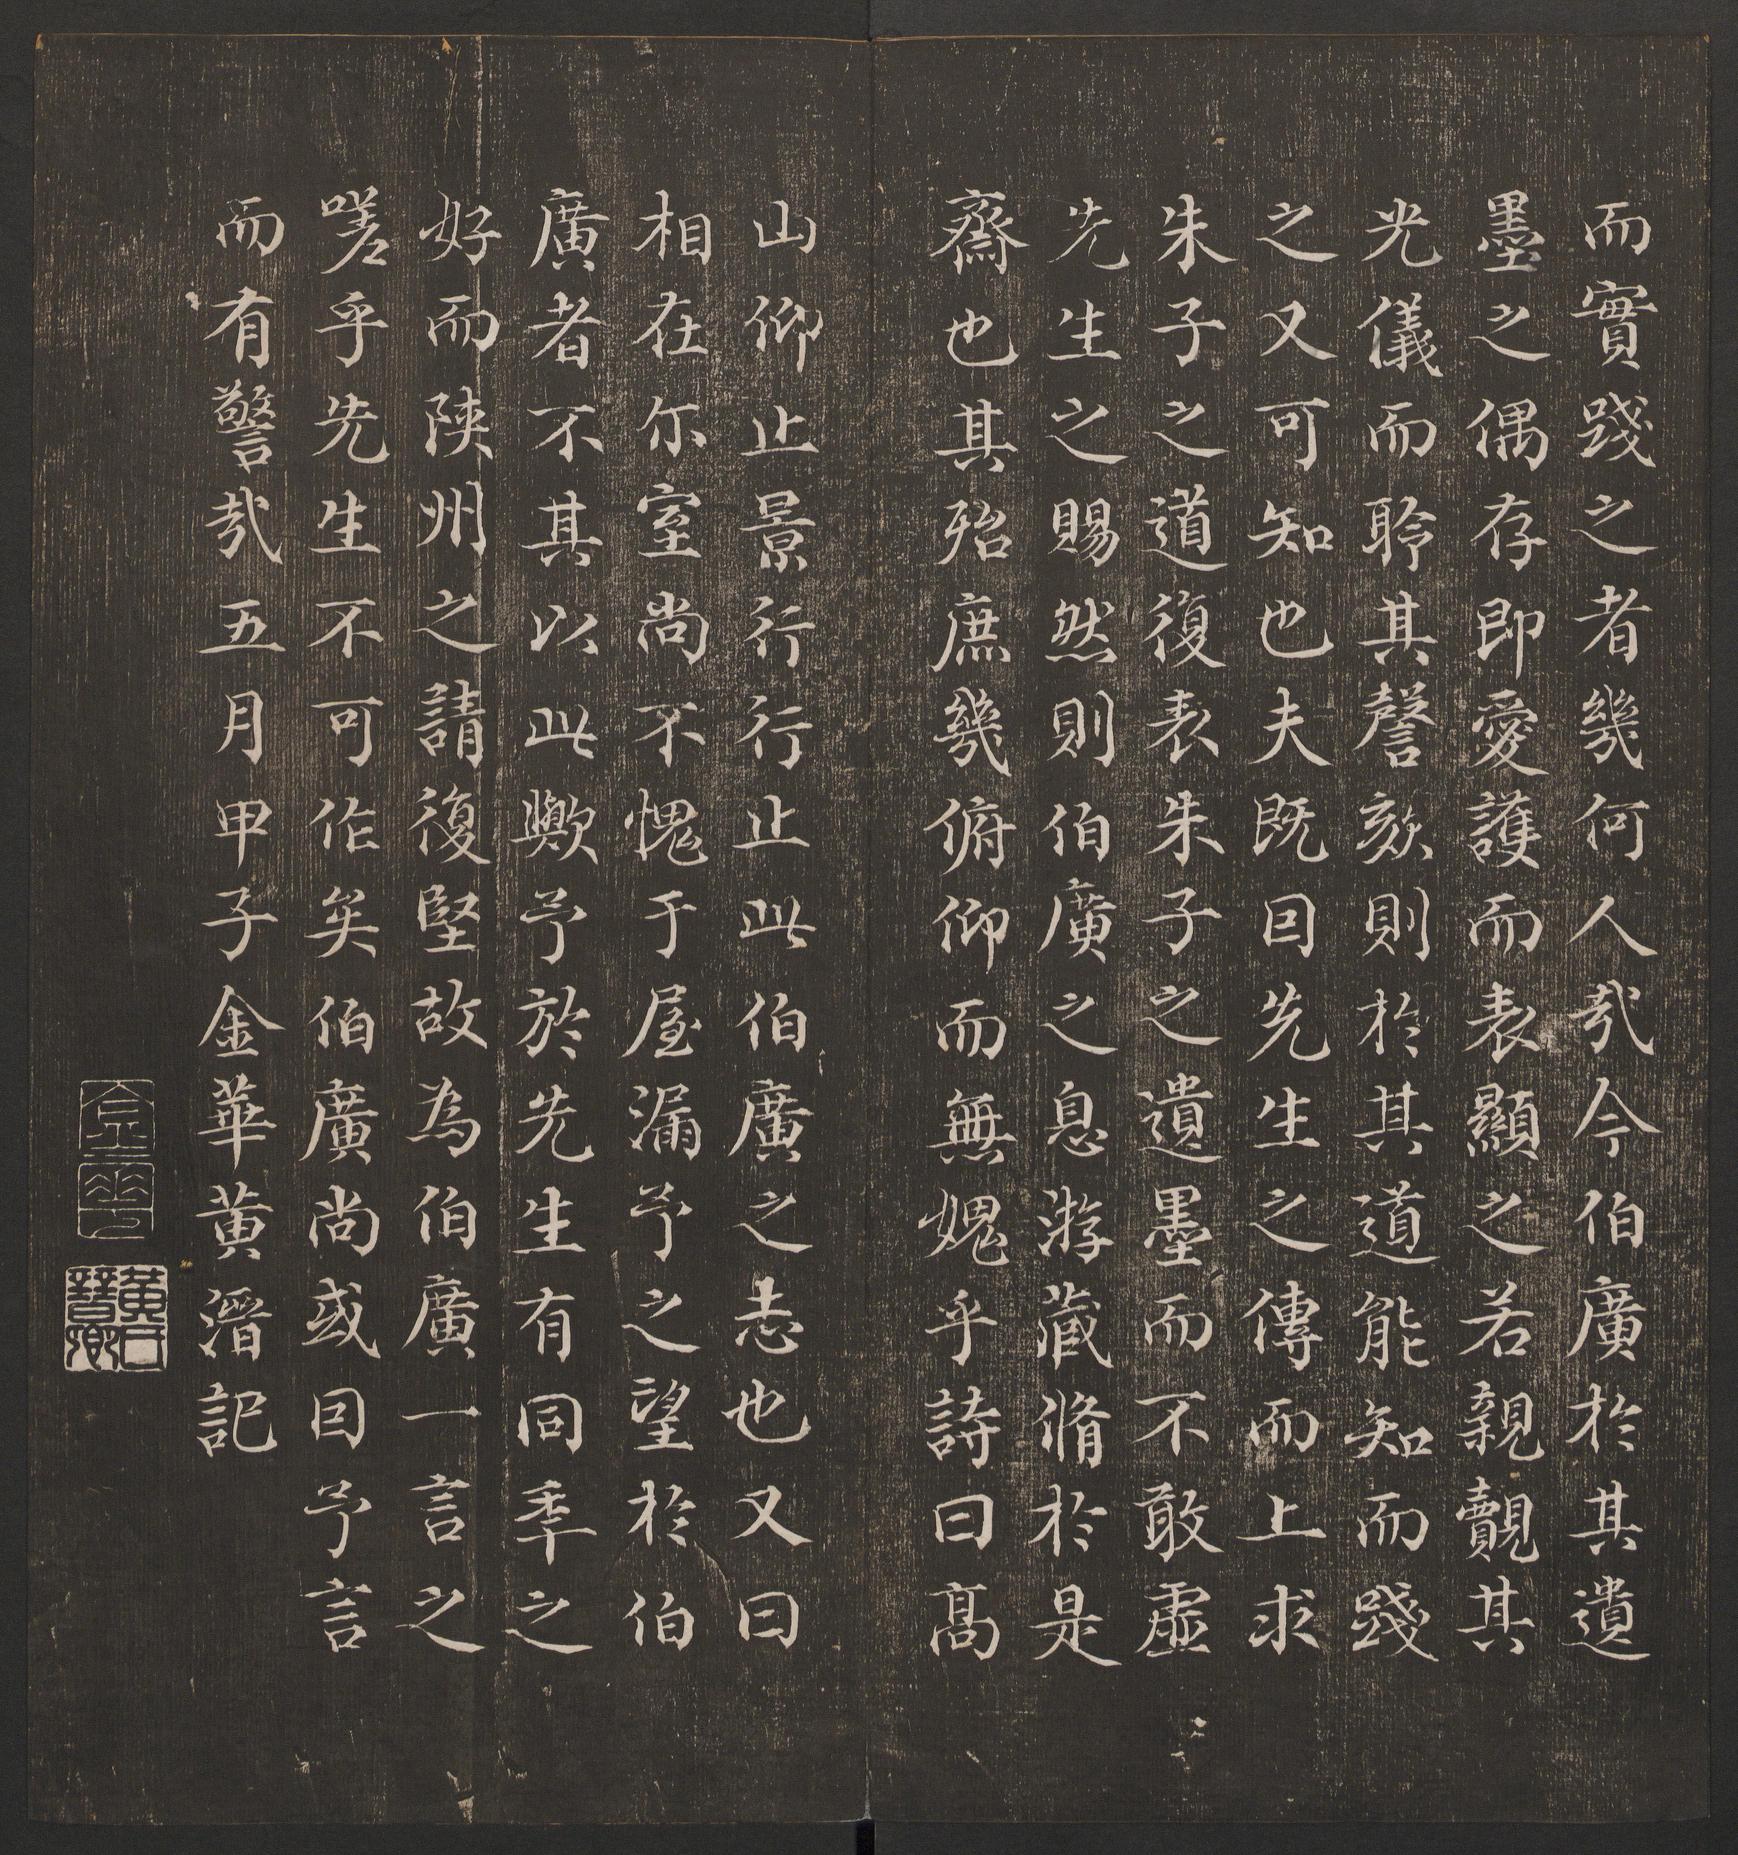 而實踐之者幾何人㢤今伯廣於其遺
墨之偶存即愛護而表顯之若親覿其
光儀而聆其謦欬則於其道能知而踐
之又可知也夫既因先生之傳而上求
朱子之道復表朱子之遺墨而不敢虛
先生之賜然則伯廣之息游藏脩於是
齋也其殆庶幾俯仰而無媿乎詩曰高
山仰止景行行止此伯廣之志也又曰
相在尔室尚不愧于屋漏予之望於伯
廣者不其以此歟予於先生有同年之
好而陝州之請復堅故為伯廣一言之
嗟乎先生不可作矣伯廣尚或因予言
而有警㢤五月甲子金華黄溍記
黄氏晉卿